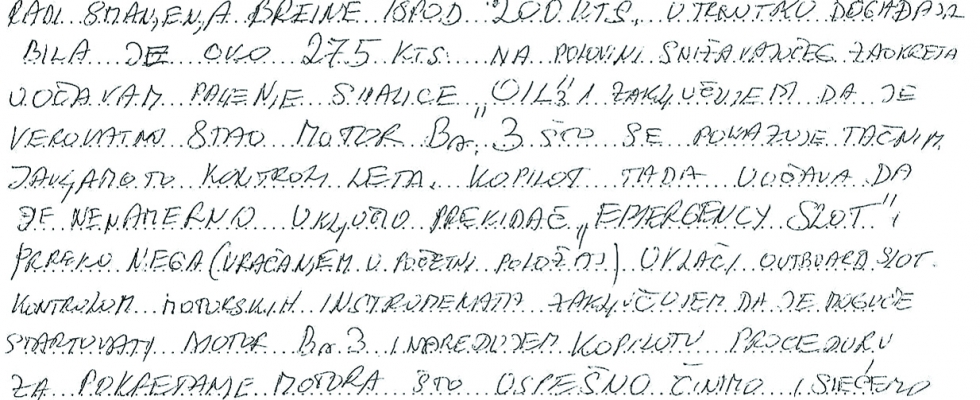 RADI SMANJENJA BRZINE ISPOD 200 KTS. U TRENUTKU DOGAĐAJA
BILA JE OKO 275 KTS. NA POLOVINI SNIŽAVAJUĆEG ZAOKRETA
UOČAVAM PALJENJE SIJALICE „OIL 3" I ZAKLJUČUJEM DA JE
VEROVATNO STAO MOTOR Br. 3 ŠTO SE POKAZUJE TAČNIM
JAVLJAMO TO KONTROLI LETA. KOPILOT TADA UOČAVA DA
JE NENAMERNO UKLJUČIO PREKIDAČ „EMERGENCY SLOT" I
PREKO NJEGA (VRAĆANJEM U POČETNI POLOŽAJ) UVLAČI OUTBOARD SLOT.
KONTROLOM MOTORSKIH INSTRUMENATA ZAKLJUČUJEM DA JE MOGUĆE
STARTOVATI MOTOR Br. 3 I NAREĐUJEM KOPILOTU PROCEDURU
ZA POKRETANJE MOTORA ŠTO USPEŠNO ČINIMO I SLEĆEMO